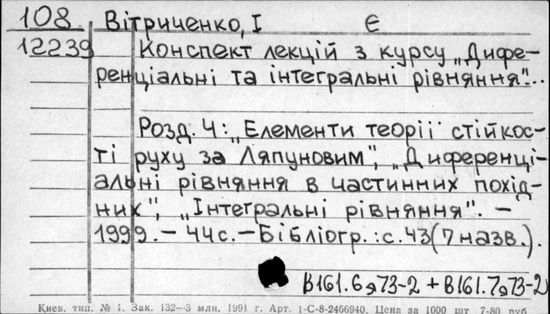 108 Вітриченко, І Є
12239 Конспект лекцій з курсу „Дифе-
ренціальні та інтегральні рівняння"...
Розд. 4: „Елементи теорії стійкос-
ті руху за Ляпуновим", „Диференці-
альні рівняння в частинних похід-
них", „Інтегральні рівняння". –
1999. – 44с. – Бібліогр.: с. 43 (7 назв.).
В161.6я73-2 + В161.7я73-2
Киев. тип. № 1. Зак. 132—3 млн. 1991 г. Арт. 1-С-8-2466940. Цена за 1000 шт. 7-80 руб